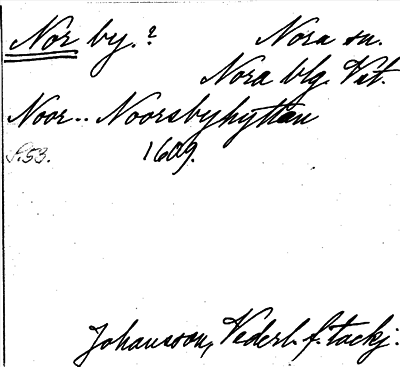 Nor by.? Nora sn.
Nora blg. Vst.
Noor.. Noorsbyhyttan
S. 53. 1609.
Johansson, Vederl. f. tackj.